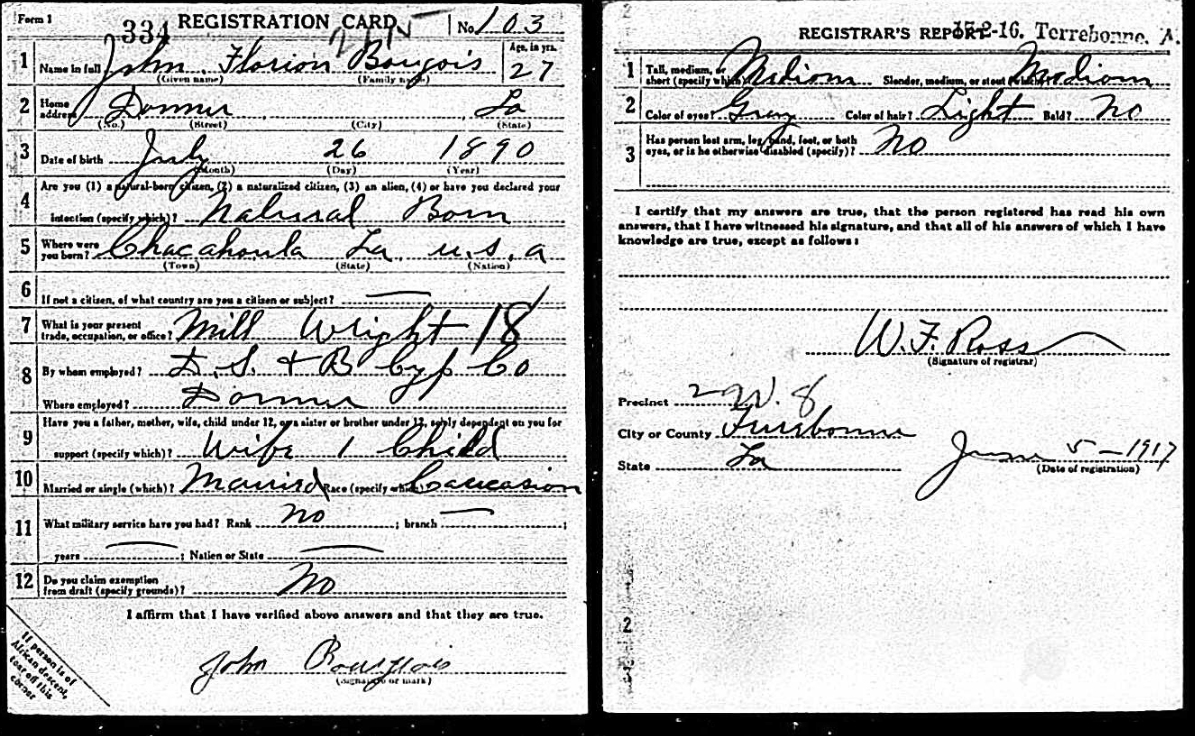 Form 1
334 REGISTRATION CARD No. 103
1 Name in full John Florion Bougois Age, in yrs. 27
(Given name) (Family name)
2 Home address Donner La
(No.) (Street) (City) (State)
3 Date of birth July 26 1890
(Month) (Day) (Year)
4 Are you (1) a natural-born citizen, (2) a naturalized citizen, (3) an alien, (4) or have you declared your
intention (specify which)? Natural Born
5 Where were you born? Chacahoula La U.S.A
(Town) (State) (Nation)
6 If not a citizen, of what country are you a citizen or subject?
7 What is your present trade, occupation, or office? Mill Wright 18
8 By whom employed? D. S. + B Cyp Co
Where employed? Donner
9 Have you a father, mother, wife, child under 12, or a sister or brother under 12, solely dependent on you for
support (specify which)? Wife 1 Child
10 Married or single (which)? Married Race (specify which)? Caucasion
11 What military service have you had? Rank No ; branch ;
years ; Nation or State
12 Do you claim exemption from draft (specify grounds)? No
I affirm that I have verified above answers and that they are true.
John Bougois
(Signature or mark)
If person is of
African descent,
tear off this
corner
REGISTRAR'S REPORT 17-2-16. Terrebonne, A.
1 Tall, medium, or short (specify which)? Medium Slender, medium, or stout (which)? Medium
2 Color of eyes? Gray Color of hair? Light Bald? No
3 Has person lost arm, leg, hand, foot, or both
eyes, or is he otherwise disabled (specify)? No
I certify that my answers are true, that the person registered has read his own
answers, that I have witnessed his signature, and that all of his answers of which I have
knowledge are true, except as follows:
W. F. Ross
(Signature of registrar)
Precinct 2 W. 8
City or County Terrebonne
State La June 5-1917
(Date of registration)
2